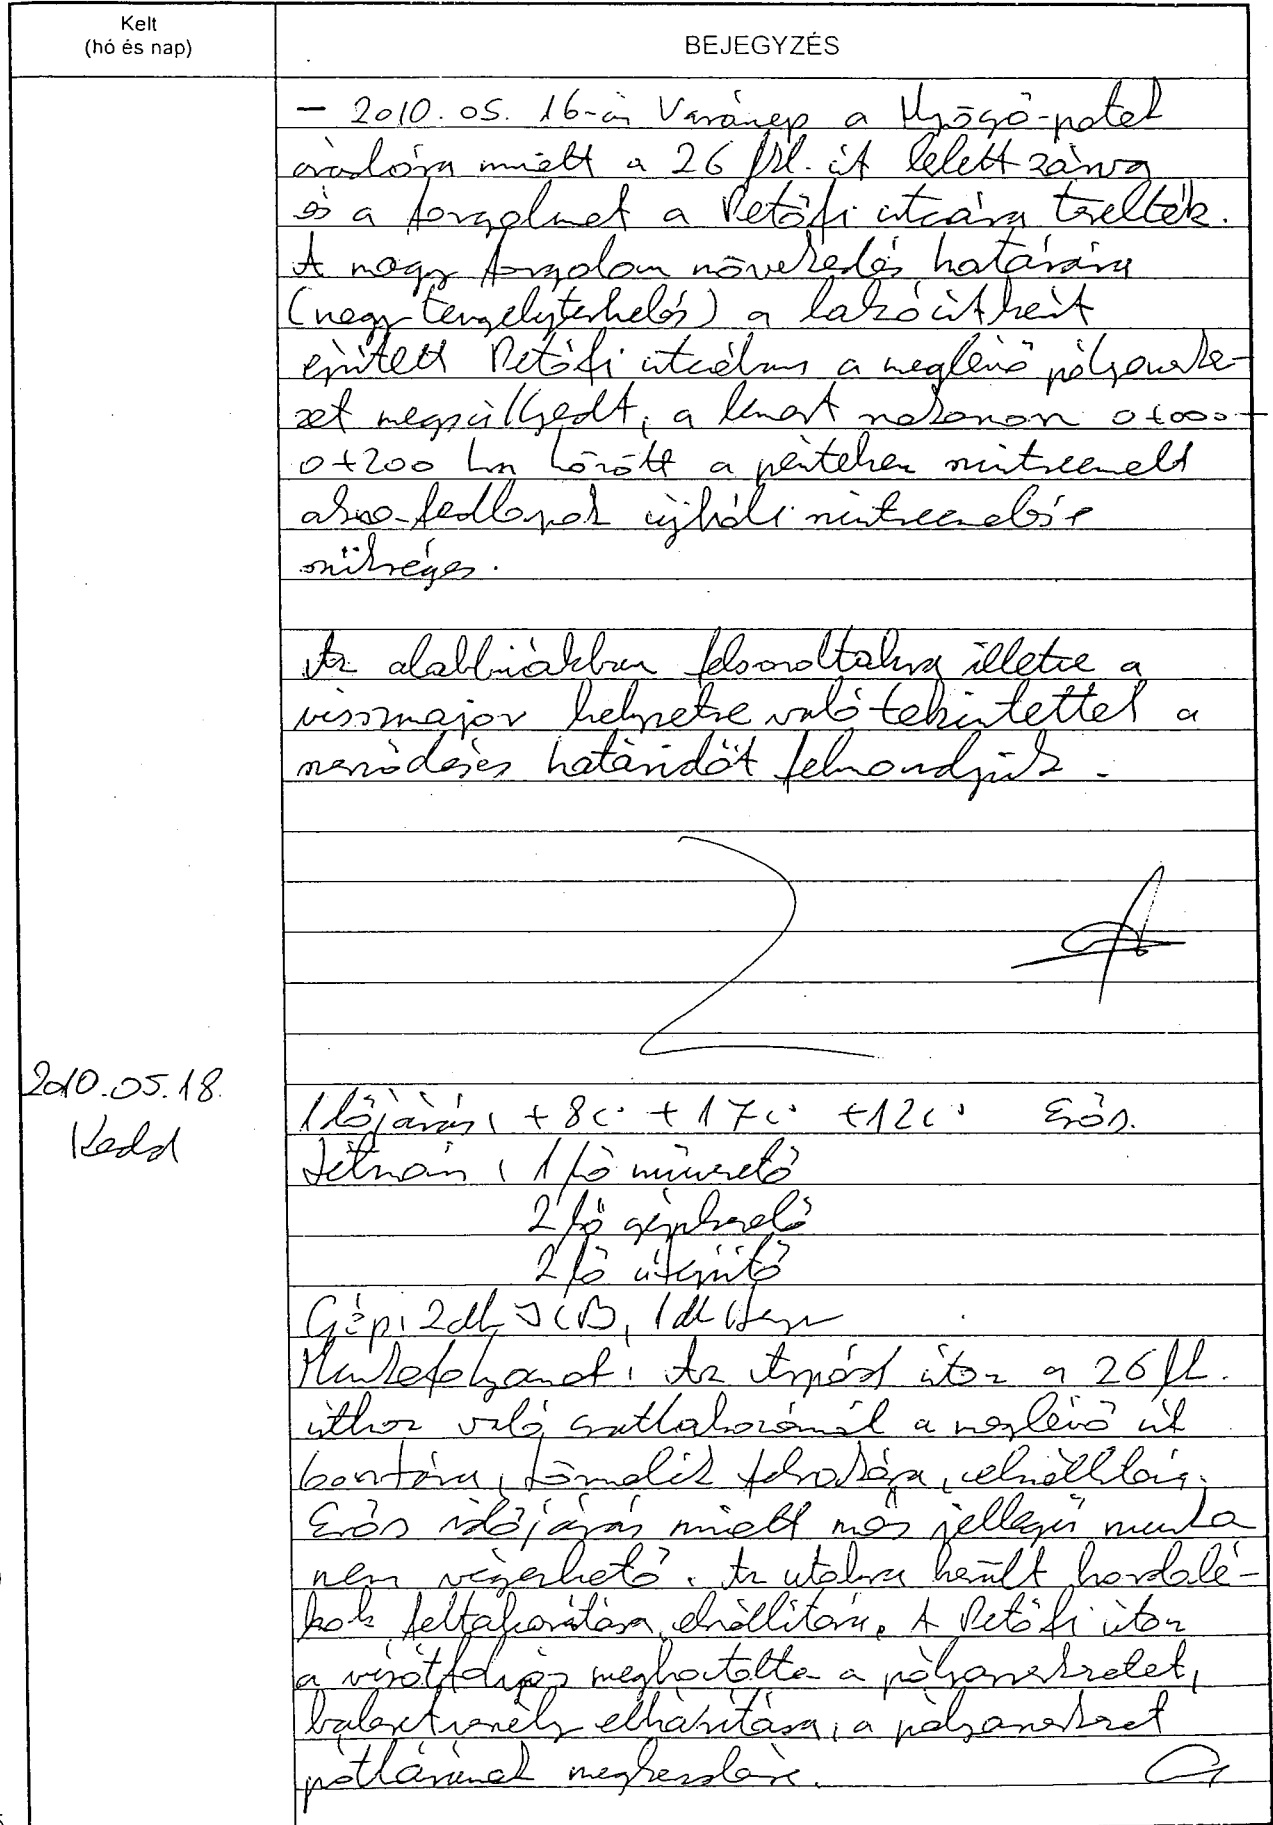 Kelt
(hó és nap)
BEJEGYZÉS
- 2010.05.16-án Vasárnap a Nyögő-patak
áradása miatt a 26 fkl. út lelett zárva
és a forgalmat a Petőfi utcára terelték.
A nagy forgalom növekedés hatására
(nagy tengelyterhelés) a lakóútként
épített Petőfi utcában a meglévő pályaszerke-
zet megsüllyedt, a kmart szakaszon 0+000-
0+200 km között a pénteken szintreemelt
akna-fedlapok újbóli szintreemelése
szükséges.
Az alábbiakban felsoroltakra illetve a
viszmajor helyzetre való tekintettel a
szerződéses határidőt felmondjuk.
2010.05.18.
Kedd
Időjárás: +8c° +17c° +12c° Esős.
Létszám: 1 fő művezető
2 fő gépkezelő
2 fő útépítő
Gép: 2db JCB, 1db
Munkafolyamat: Az Árpád úton a 26 fkl.
úthoz való csatlakozásnál a meglévő út
bontása, törmelék felrakása, elszállítása.
Esős időjárás miatt más jellegű munka
nem végezhető. Az utakra került hordalé-
kok feltakarítása, elszállítása. A Petőfi úton
a vízátfolyás megbontotta a pályaszerkezetet,
balesetveszély elhárítása, a pályaszerkezet
pótlásának megkezdése.